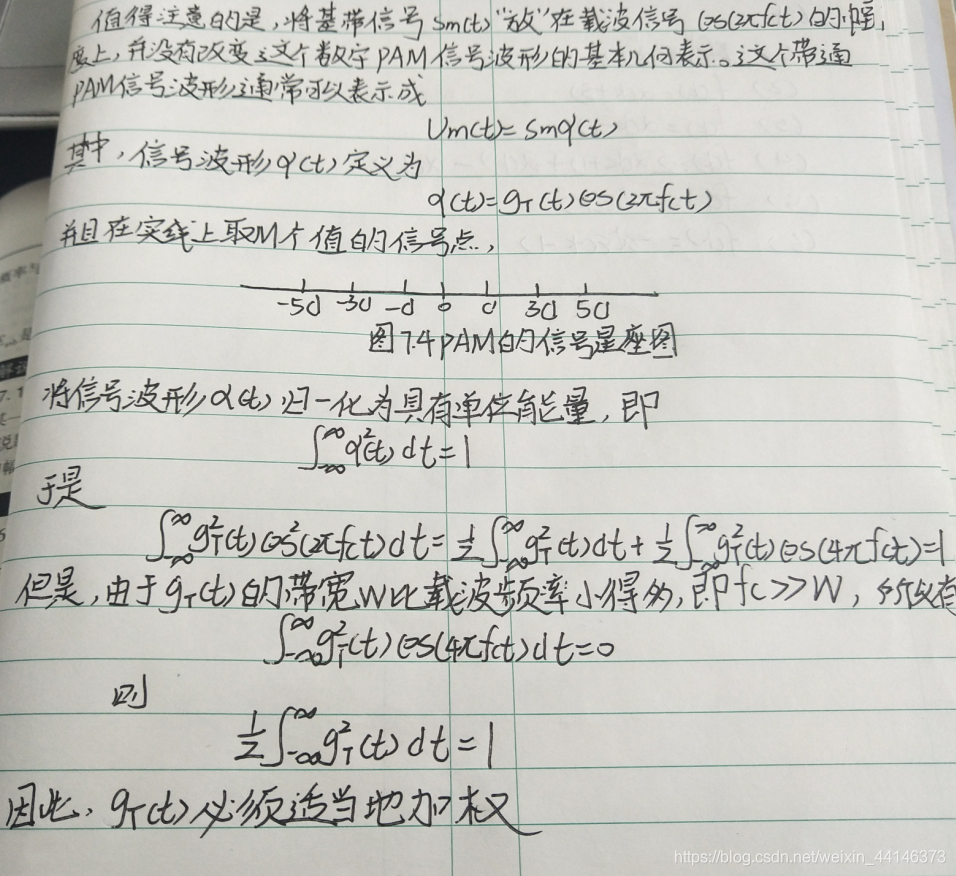 值得注意的是，将基带信号Sm(t)"放"在载波信号cos(2πfct)的幅
度上，并没有改变这个数字PAM信号波形的基本几何表示。这个带通
PAM信号波形通常可以表示成
Um(t)=Smφ(t)
其中，信号波形φ(t)定义为
φ(t)=gT(t)cos(2πfct)
并且在实线上取M个值的信号点，
-5d -3d -d 0 d 3d 5d
图7.4 PAM的信号星座图
将信号波形φ(t)归一化为具有单位能量，即
∫_{-∞}^{∞}φ²(t)dt=1
于是
∫_{-∞}^{∞}gT²(t)cos²(2πfct)dt=½∫_{-∞}^{∞}gT²(t)dt+½∫_{-∞}^{∞}gT²(t)cos(4πfct)=1
但是，由于gT(t)的带宽W比载波频率小得多，即fc>>W，所以有
∫_{-∞}^{∞}gT²(t)cos(4πfct)dt=0
则
½∫_{-∞}^{∞}gT²(t)dt=1
因此，gT(t)必须适当地加权
https://blog.csdn.net/weixin_44146373